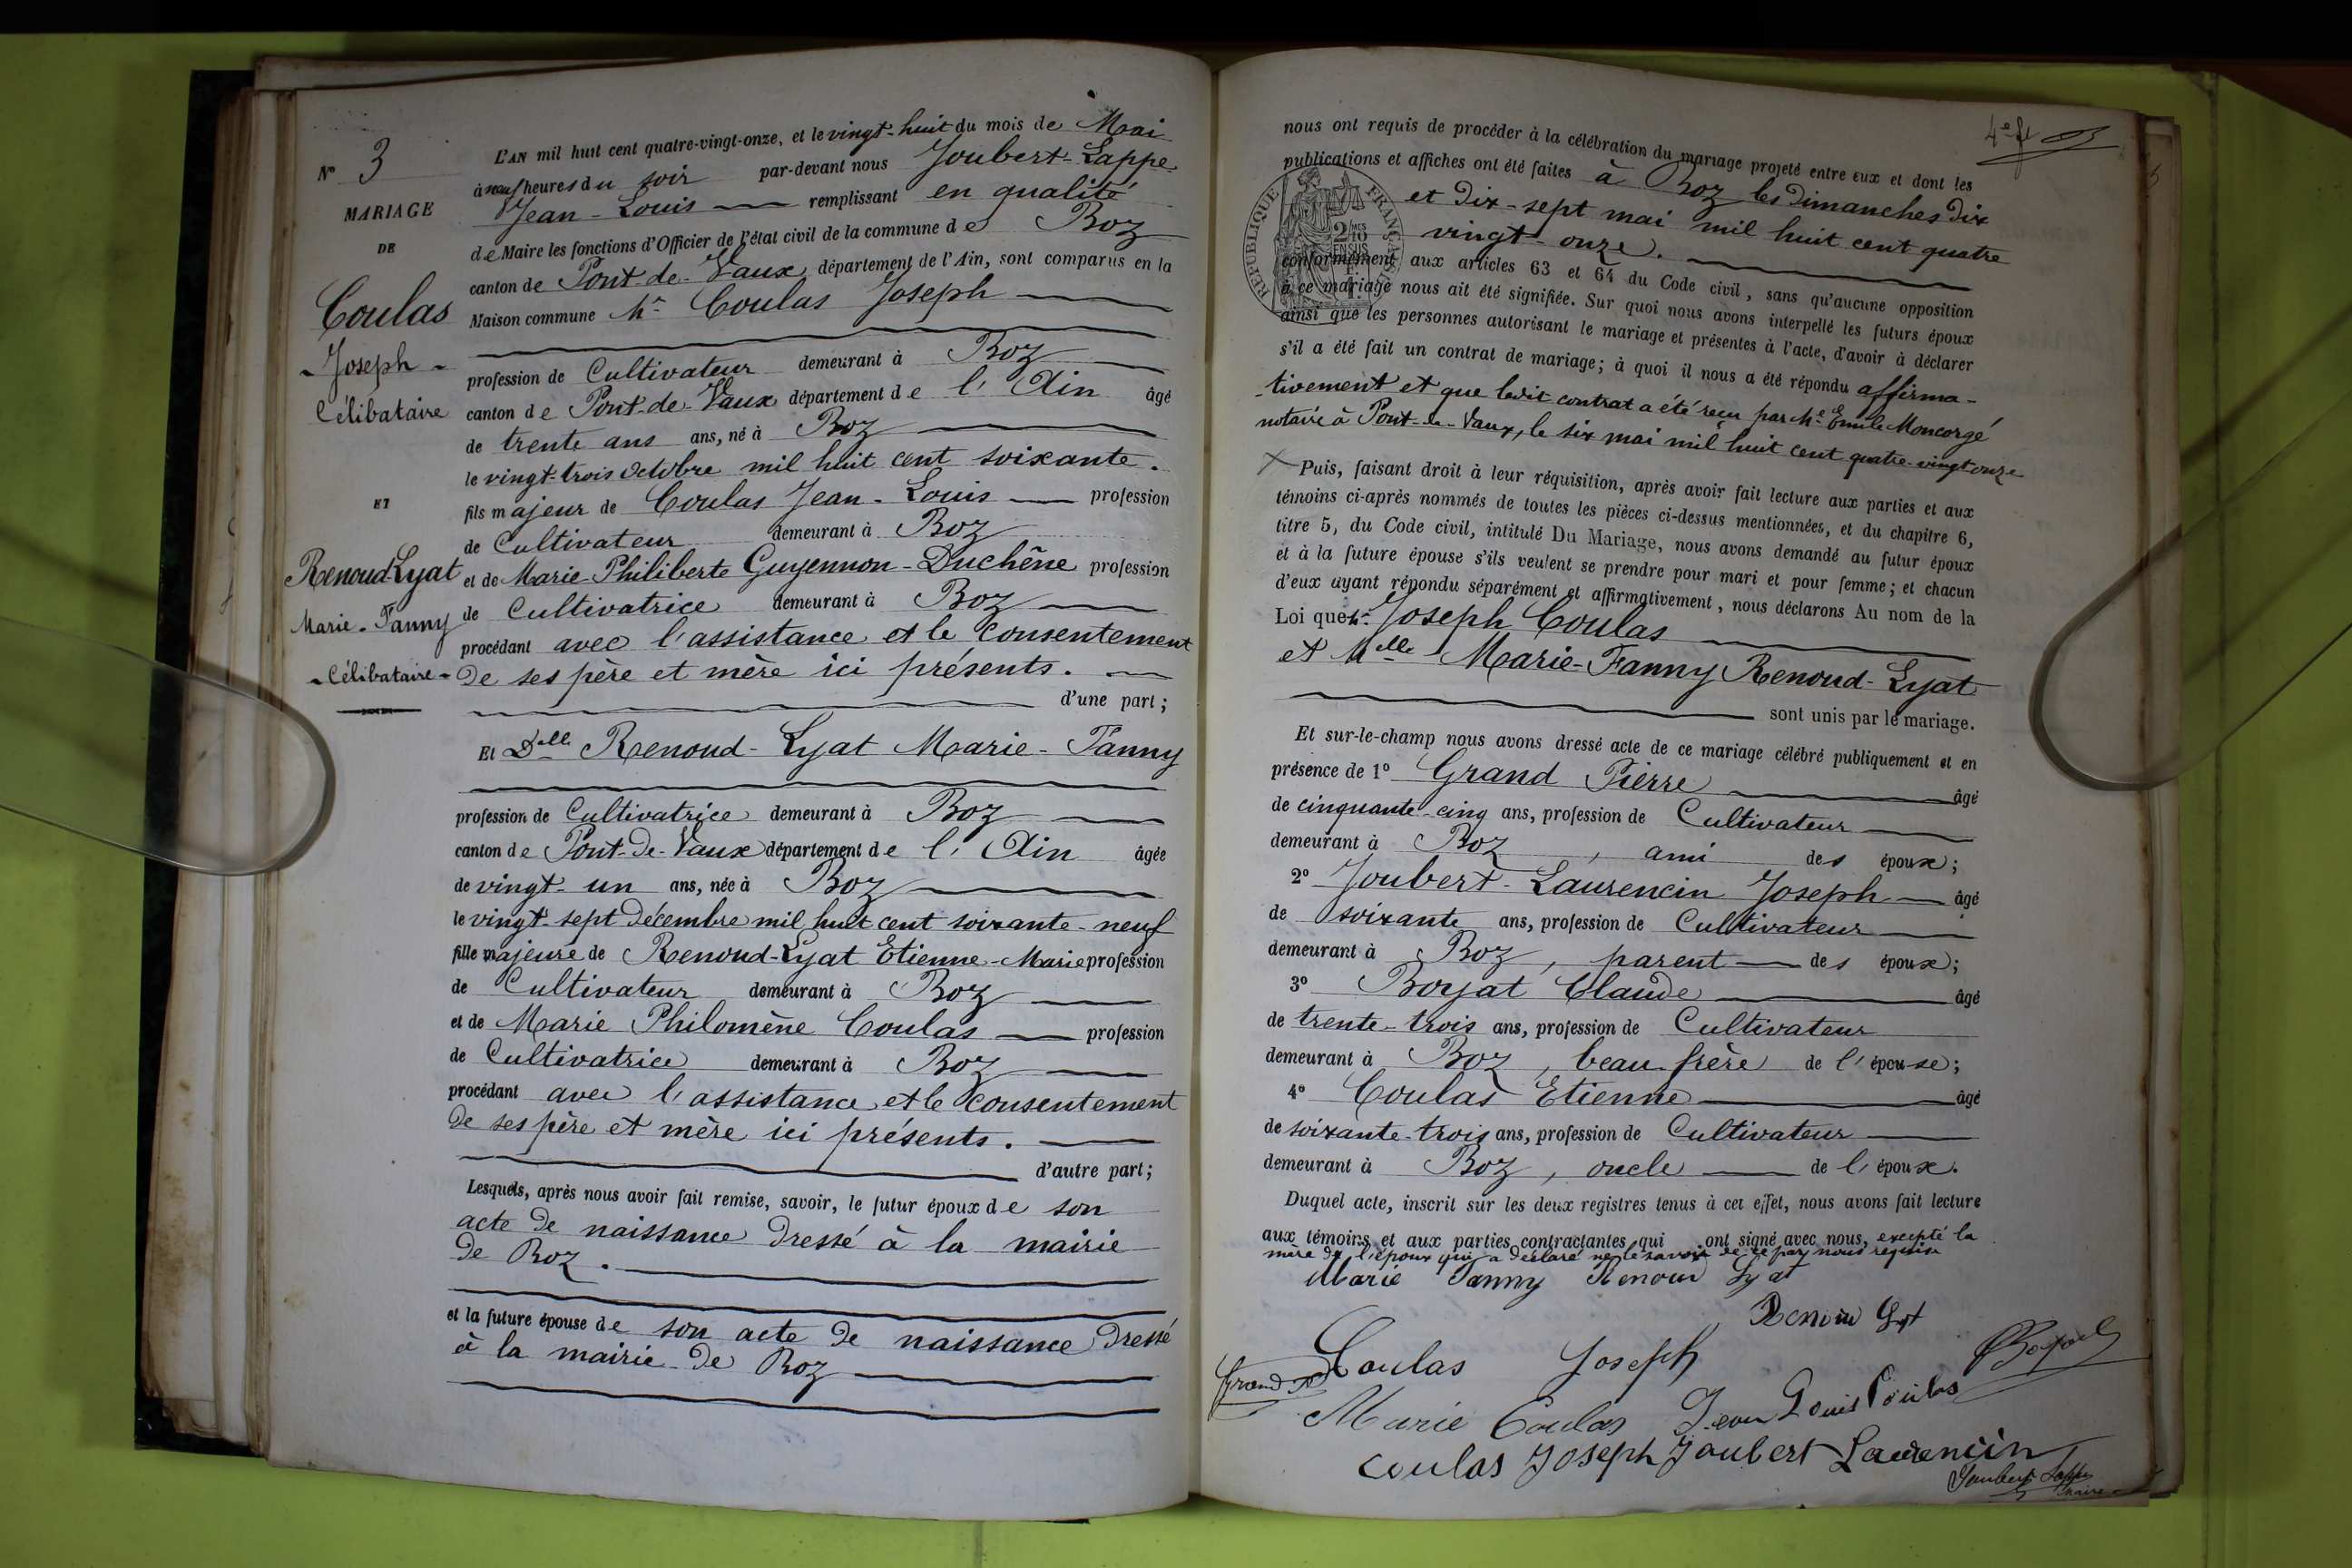 N° 3
MARIAGE
DE
Coulas
- Joseph -
Célibataire
ET
Renoud-Lyat
Marie-Fanny
- Célibataire -
L'AN mil huit cent quatre-vingt-onze, et le vingt-huit du mois de Mai
à neuf heures du soir par-devant nous Joubert-Lappe
Jean-Louis remplissant en qualité
de Maire les fonctions d'Officier de l'état civil de la commune de Boz
canton de Pont-de-Vaux, département de l'Ain, sont comparus en la
Maison commune Mr Coulas Joseph
profession de Cultivateur demeurant à Boz
canton de Pont-de-Vaux département de l'Ain âgé
de trente ans ans, né à Boz
le vingt-trois octobre mil huit cent soixante.
fils majeur de Coulas Jean-Louis profession
de Cultivateur demeurant à Boz
et de Marie Philiberte Guyennon-Duchêne profession
de Cultivatrice demeurant à Boz
procédant avec l'assistance et le consentement
de ses père et mère ici présents.
d'une part;
Et Delle Renoud-Lyat Marie-Fanny
profession de Cultivatrice demeurant à Boz
canton de Pont-de-Vaux département de l'Ain âgée
de vingt-un ans, née à Boz
le vingt-sept décembre mil huit cent soixante-neuf
fille majeure de Renoud-Lyat Etienne-Marie profession
de Cultivateur demeurant à Boz
et de Marie Philomène Coulas profession
de Cultivatrice demeurant à Boz
procédant avec l'assistance et le consentement
de ses père et mère ici présents.
d'autre part;
Lesquels, après nous avoir fait remise, savoir, le futur époux de son
acte de naissance dressé à la mairie
de Boz.
et la future épouse de son acte de naissance dressé
à la mairie de Boz
4e f
nous ont requis de procéder à la célébration du mariage projeté entre eux et dont les
publications et affiches ont été faites à Boz les dimanches dix
et dix-sept mai mil huit cent quatre
vingt-onze.
RÉPUBLIQUE FRANÇAISE
conformément aux articles 63 et 64 du Code civil, sans qu'aucune opposition
à ce mariage nous ait été signifiée. Sur quoi nous avons interpellé les futurs époux
ainsi que les personnes autorisant le mariage et présentes à l'acte, d'avoir à déclarer
s'il a été fait un contrat de mariage; à quoi il nous a été répondu affirma-
-tivement et que ledit contrat a été reçu par Me Emile Moncorgé
notaire à Pont-de-Vaux, le six mai mil huit cent quatre-vingt onze
Puis, faisant droit à leur réquisition, après avoir fait lecture aux parties et aux
témoins ci-après nommés de toutes les pièces ci-dessus mentionnées, et du chapitre 6,
titre 5, du Code civil, intitulé Du Mariage, nous avons demandé au futur époux
et à la future épouse s'ils veulent se prendre pour mari et pour femme; et chacun
d'eux ayant répondu séparément et affirmativement, nous déclarons Au nom de la
Loi que Mr Joseph Coulas
et Melle Marie-Fanny Renoud-Lyat
sont unis par le mariage.
Et sur-le-champ nous avons dressé acte de ce mariage célébré publiquement et en
présence de 1° Grand Pierre âgé
de cinquante-cinq ans, profession de Cultivateur
demeurant à Boz, ami des époux;
2° Joubert-Laurencin Joseph âgé
de soixante ans, profession de Cultivateur
demeurant à Boz, parent des époux;
3° Boyat Claude âgé
de trente-trois ans, profession de Cultivateur
demeurant à Boz, beau-frère de l'épouse;
4° Coulas Etienne âgé
de soixante-trois ans, profession de Cultivateur
demeurant à Boz, oncle de l'époux.
Duquel acte, inscrit sur les deux registres tenus à cet effet, nous avons fait lecture
aux témoins et aux parties contractantes qui ont signé avec nous, excepté la
mère de l'époux qui a déclaré ne le savoir de ce par nous requise
Marie Fanny Renoud Lyat
Renoud Lyat
Coulas Joseph Boyat
Grand P
Marie Coulas Jean Louis Coulas
Coulas Joseph Joubert Laurencin
Joubert Lappe
Maire